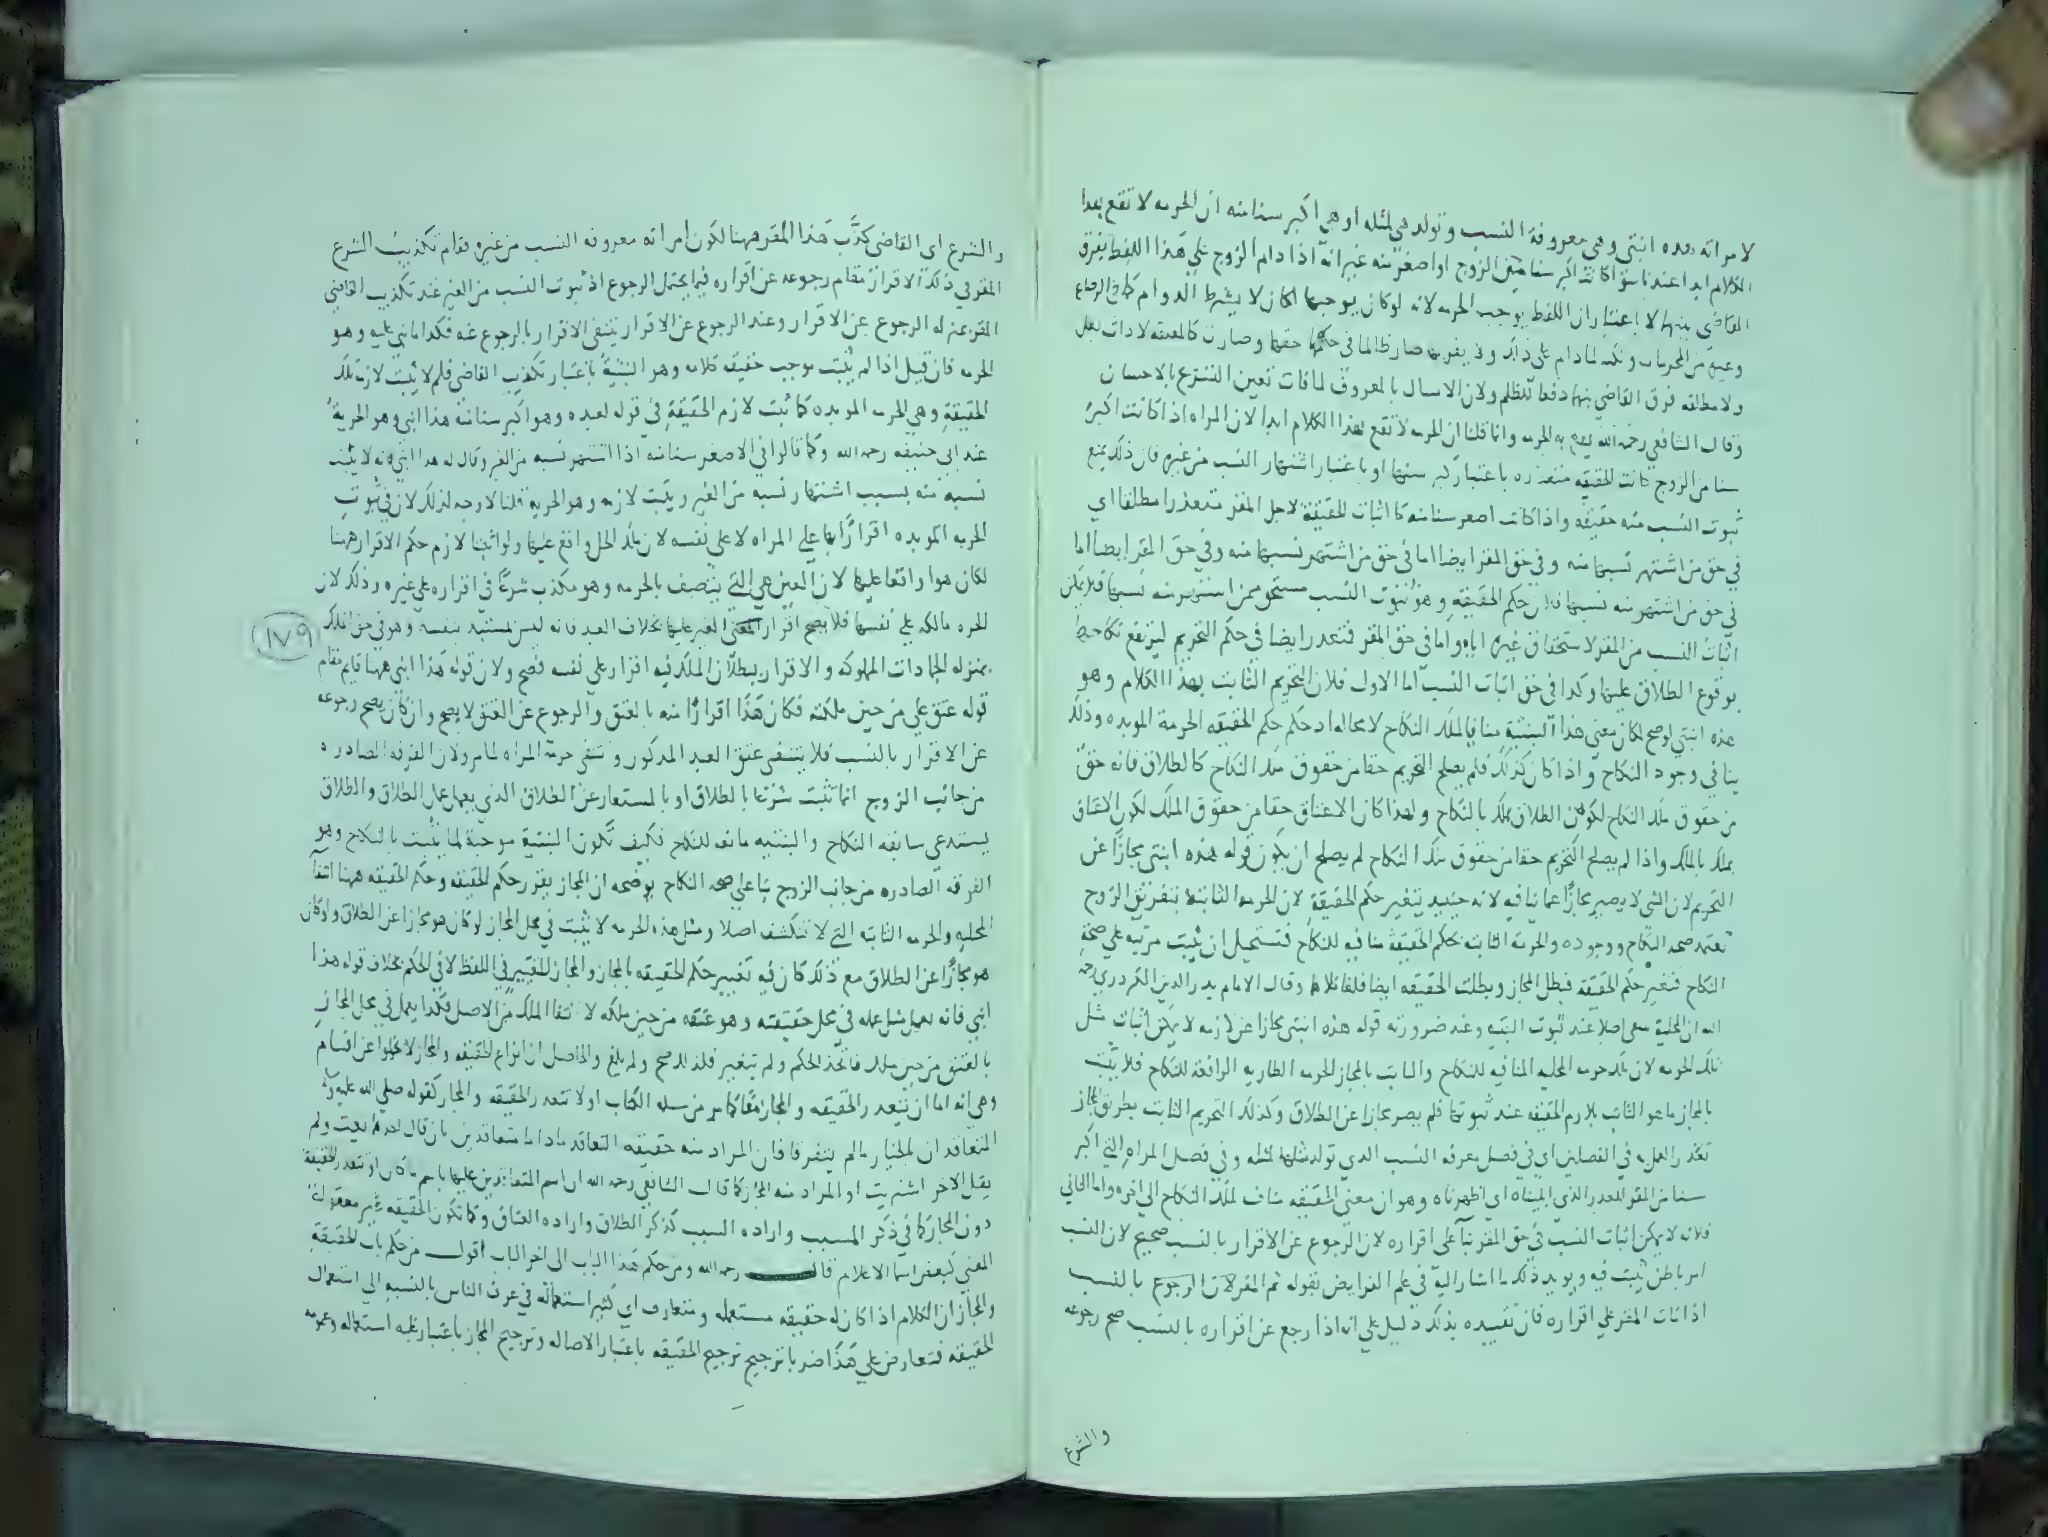 لامراته هذه ابنتي وهي معروفة النسب وتولد هي لمثله او هي اكبر سنا منه ان الحرمه لا تقع بهذا
الكلام ابدا عندنا سوا كانت اكبر سنا من الزوج او اصغر منه غير انه اذا دام الزوج على هذا اللفظ يفرق
القاضي بينهما لا باعتبار ان اللفظ يوجب الحرمه لانه لو كان يوجبها لكان لا يشترط الدوام كما في الرضاع
وغيره من المحرمات ولكنه لما دام على ذلك ولم يقربها صار ظالما في حقها وصارت كالمعلقه لا ذات بعل
ولا مطلقه فرق القاضي بينهما دفعا للظلم ولان الامساك بالمعروف لما فات تعين التسريح بالاحسان
وقال الشافعي رحمه الله يقع به الحرمه وانما قلنا ان الحرمه لا تقع بهذا الكلام ابدا لان المراه اذا كانت اكبر
سنا من الزوج كانت الحقيقه متعذره باعتبار كبر سنها او باعتبار اشتهار النسب من غيره فان ذلك يمنع
ثبوت النسب منه حقيقه واذا كانت اصغر سنا منه كان اثبات الحقيقة لاجل المقر متعذرا مطلقا اي
في حق من اشتهر نسبها منه وفي حق المقر ايضا اما في حق من اشتهر نسبها منه وفي حق المقر ايضا اما
في حق من اشتهر منه نسبها فلان حكم الحقيقه وهو ثبوت النسب مستحق ممن اشتهر منه نسبها فلا يمكن
اثبات النسب من المقر لاستحقاق غيره اياه واما في حق المقر فتعذر ايضا في حكم التحريم ليرتفع نكاحها
بوقوع الطلاق عليها وكذا في حق اثبات النسب اما الاول فلان التحريم الثابت بهذا الكلام وهو
هذه ابنتي لو صح لكان معنى هذا البنتية منافيا لملك النكاح لا محاله اذ حكم حكم الحقيقه الحرمة الموبده وذلك
ينافي وجود النكاح واذا كان كذلك فلم يصلح التحريم حقا من حقوق ملك النكاح كالطلاق فانه حق
من حقوق ملك النكاح لكون الطلاق يملك بالنكاح ولهذا كان الاعتاق حقا من حقوق الملك لكون الاعتاق
يملك بالملك واذا لم يصلح التحريم حقا من حقوق ملك النكاح لم يصلح ان يكون قوله هذه ابنتي مجازا عن
التحريم لان الشي لا يصير مجازا عما ينافيه لانه حينئذ يتغير حكم الحقيقة لان الحرمه الثابتة بتفريق الزوج
تعتمد صحه النكاح ووجوده والحرمة الثابته بحكم الحقيقة منافيه للنكاح فتستحيل ان يثبت مرتبه على صحة
النكاح فتغير حكم الحقيقة فبطل المجاز وبطلت الحقيقه ايضا فلغا كلاما وقال الامام بدر الدين الكردري رحمه
الله ان الحلية معنى اصلا عند ثبوت البنتية وعند ضرورته قوله هذه ابنتي مجازا عن لازمه لا يمكن اثبات مثل
تلك الحرمه لان تلك حرمه المحليه المنافيه للنكاح والثابت بالمجاز الحرمه الطاريه الرافعة للنكاح فلا يثبت
بالمجاز ما هو الثابت بلازم الحقيقه عند ثبوتها فلم يصر مجازا عن الطلاق وكذلك التحريم الثابت بطريق المجاز
تعذر العمل به في الفصلين اي في فصل معرفه النسب الذي تولد مثلها لمثله وفي فصل المراه التي اكبر
سنا من المقر للعذر الذي ابليناه اي اظهرناه وهو ان معنى الحقيقه مناف لملك النكاح الى اخره واما الثاني
فلانه لا يمكن اثبات النسب في حق المقر بنا على اقراره لان الرجوع عن الاقرار بالنسب صحيح لان النسب
امر باطن ثبت فيه ويويد ذلك ما اشار اليه في علم الفرايض بقوله ثم المقر له لان الرجوع بالنسب
اذا مات المقر على اقراره فان تقييده بذلك دليل على انه اذا رجع عن اقراره بالنسب صح رجوعه
والشرع
والشرع اي القاضي كذب هذا المقر ههنا لكون امراته معروفه النسب من غيره فقام تكذيب الشرع
المقر في ذلك الاقرار مقام رجوعه عن اقراره فيما يحتمل الرجوع اذ ثبوت النسب من الغير عند تكذيب القاضي
المقر بمنزله الرجوع عن الاقرار وعند الرجوع عن الاقرار ينتفى الاقرار بالرجوع عنه فكذا ما بني عليه وهو
الحرمه فان قيل اذا لم يثبت موجب حقيقه كلامه وهو البنتية باعتبار تكذيب القاضي فلم لا يثبت لازم تلك
الحقيقة وهي الحرمه الموبده كما ثبت لازم الحقيقة في قوله لعبده وهو اكبر سنا منه هذا ابني وهو الحرية
عند ابي حنيفه رحمه الله وكما قالوا في الاصغر سنا منه اذا اشتهر نسبه من الغير وقال له هذا ابني فانه لا يثبت
نسبه منه بسبب اشتهار نسبه من الغير ويثبت لازمه وهو الحرية قلنا لا وجه لذلك لان في ثبوت
الحرمه الموبده اقرارا بها على المراه لا على نفسه لان ملك الحل واقع عليها ولو اثبتنا لازم حكم الاقرار ههنا
لكان هو واقعا عليها لان العين هي التي يتصف بالحرمه وهو مكذب شرعا في اقراره على غيره وذلك لان
الحره مالكه على نفسها فلا يصح اقرار الغير عليها بخلاف العبد فانه ليس لمستبد بنفسه وهو في حق الملك
بمنزله الجمادات المملوكه والاقرار ببطلان الملك فيه اقرار على نفسه فصح ولان قوله هذا ابني ههنا قايم مقام
قوله عتق علي من حين ملكته فكان هذا اقرارا منه بالعتق والرجوع عن العتق لا يصح وان كان يصح رجوعه
عن الاقرار بالنسب فلا ينتفى عتق العبد المذكور وتنتفى حرمة المراه لما مر ولان الفرقه الصادره
من جانب الزوج انما تثبت شرعا بالطلاق او بالمستعار عن الطلاق الذي يعمل عمل الطلاق والطلاق
يستدعي سابقه النكاح والبنتيه مانعه للنكاح فكيف تكون البنتية موجبة لما يثبت بالنكاح وهو
الفرقه الصادره من جانب الزوج بنا على صحه النكاح يوضحه ان المجاز يقرر حكم الحقيقه وحكم الحقيقه ههنا انتفا
المحليه والحرمه الثابته التي لا تنكشف اصلا ومثل هذه الحرمه لا يثبت في محل المجاز لو كان هو مجازا عن الطلاق ولو كان
هو مجازا عن الطلاق مع ذلك كان فيه تغيير حكم الحقيقه بالمجاز والمجاز للتغيير في اللفظ لا في الحكم بخلاف قوله هذا
ابني فانه يعمل مثل عمله في محل حقيقته وهو عتقه من حين ملكه لا انتفا الملك من الاصل فكذا يعمل في محل المجاز
بالعتق من حين ملك فاتخذ الحكم ولم يتغير فلذلك صح ولم يلغ والحاصل ان انواع الحقيقه والمجاز لا يخلوا عن اقسام
وهي انه اما ان تتعذر الحقيقه والمجاز معا كما مر من مسله الكتاب اولا تتعذر الحقيقه والمجاز كقوله صلى الله عليه وسلم
المتعاقدان بالخيار ما لم يتفرقا فان المراد منه حقيقه التعاقد ما داما متعاقدين بان قال احدهما بعت ولم
يقل الاخر اشتريت او المراد منه المجاز كما قال الشافعي رحمه الله ان اسم المتعاقدين عليهما باسم ما كان او تتعذر الحقيقة
دون المجاز كما في ذكر المسبب واراده السبب كذكر الطلاق واراده العتاق وكما تكون الحقيقه غير معقولة
المعنى كبعض اسما الاعلام قال رحمه الله ومن حكم هذا الباب الى اخر الباب اقول من حكم باب الحقيقة
والمجاز ان الكلام اذا كان له حقيقه مستعمله ومتعارف اي كثير استعماله في عرف الناس بالنسبه الى استعمال
الحقيقه فتعارض على هذا ضربا ترجيح ترجيح الحقيقه باعتبار الاصاله وترجيح المجاز باعتبار غلبه استعماله وعمومه
١٧٩